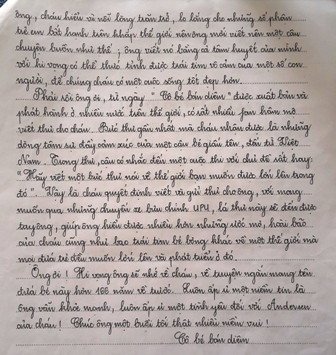 ông, cháu hiểu và nỗi lòng trăn trở, lo lắng cho những số phận
trẻ em bất hạnh trên khắp thế giới nên ông mới viết nên một câu
chuyện buồn như thế; ông viết nó bằng cả tâm huyết của mình
với hi vọng có thể thức tỉnh được trái tim vô cảm của một số con
người, để chúng cháu có một cuộc sống tốt đẹp hơn.
Phải rồi ông ơi, từ ngày "Cô bé bán diêm" được xuất bản và
phát hành ở nhiều nước trên thế giới, có rất nhiều fan hâm mộ
viết thư cho cháu. Bức thư gần nhất mà cháu nhận được là những
dòng tâm sự đầy cảm xúc của một cậu bé giấu tên, đến từ Việt
Nam. Trong thư, cậu có nhắc đến một cuộc thi với chủ đề rất hay:
"Hãy viết một bức thư nói về thế giới bạn muốn được lớn lên trong
đó". Vậy là cháu quyết định viết và gửi thư cho ông, với mong
muốn qua những chuyến xe bưu chính UPU, lá thư này sẽ đến được
tay ông, giúp ông hiểu được nhiều hơn những ước mơ, hoài bão
của cháu cũng như bao trái tim bé bỏng khác về một thế giới mà
mọi đứa trẻ đều muốn lớn lên và phát triển ở đó.
Ông ơi! Hi vọng ông sẽ nhớ về cháu, về truyện ngắn mang tên
đứa bé này hơn 166 năm về trước. Luôn ấp ủ một niềm tin là
ông vẫn khỏe mạnh, luôn ấp ủ một tình yêu đối với Andersen
của cháu! Chúc ông một buổi tối thật nhiều niềm vui!
Cô bé bán diêm